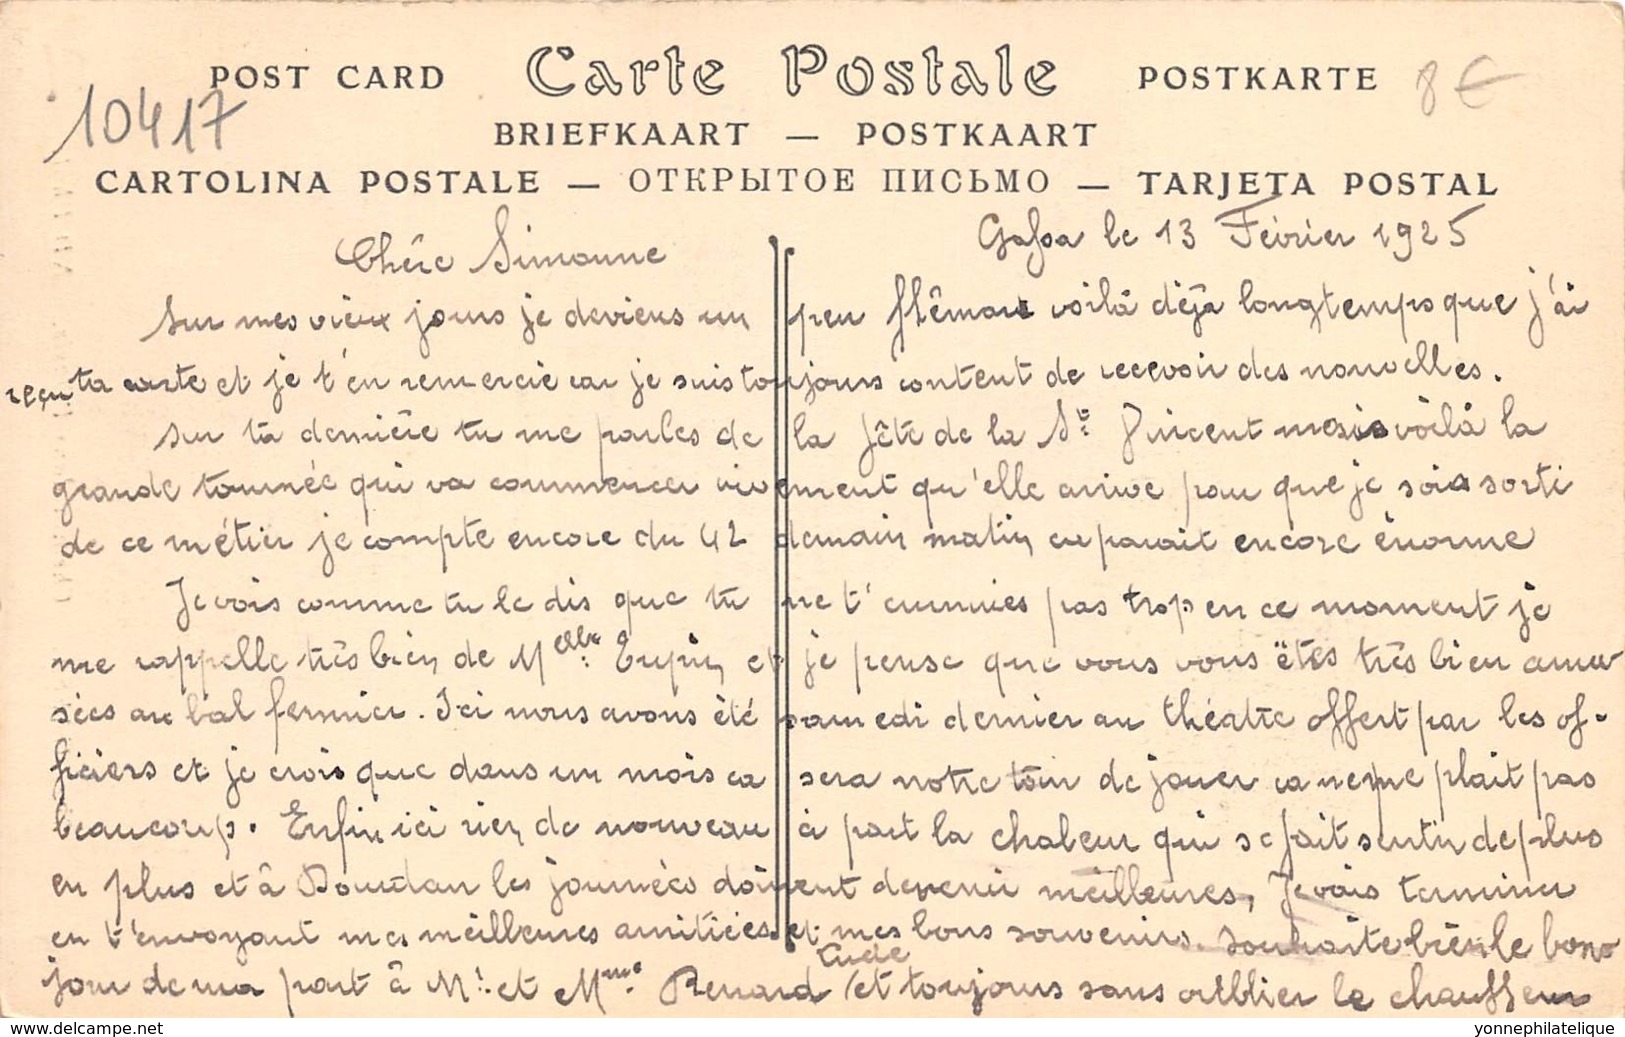 POST CARD Carte Postale POSTKARTE 8€
10417
BRIEFKAART — POSTKAART
CARTOLINA POSTALE — ОТКРЫТОЕ ПИСЬМО — TARJETA POSTAL
Gafsa le 13 Février 1925
Chère Simonne
Sur mes vieux jours je deviens un peu flêmard voilà déjà longtemps que j'ai
reçu ta carte et je t'en remercie car je suis toujours content de recevoir des nouvelles.
Sur ta dernière tu me parles de la fête de la St. Vincent mais voilà la
grande tournée qui va commencer vivement qu'elle arrive pour que je sois sorti
de ce métier je compte encore du 42 demain matin ca parait encore énorme
Je vois comme tu le dis que tu ne t'ennuies pas trop en ce moment je
me rappelle très bien de Melle. et je pense que vous vous êtes très bien amu-
sées au bal fermier. Ici nous avons été samedi dernier au théatre offert par les of-
ficiers et je crois que dans un mois ca sera notre tour de jouer ca ne me plait pas
beaucoup. Enfin ici rien de nouveau à part la chaleur qui se fait sentir de plus
en plus et à Dourdan les journées doivent devenir meilleures, Je vais terminer
en t'envoyant mes meilleures amitiées et mes bons souvenirs. Souhaite bien le bon-
jour de ma part à Mr. et Mme. Renard et toujours sans oublier le chauffeur
yonnephilatelique
Visit www.delcampe.net